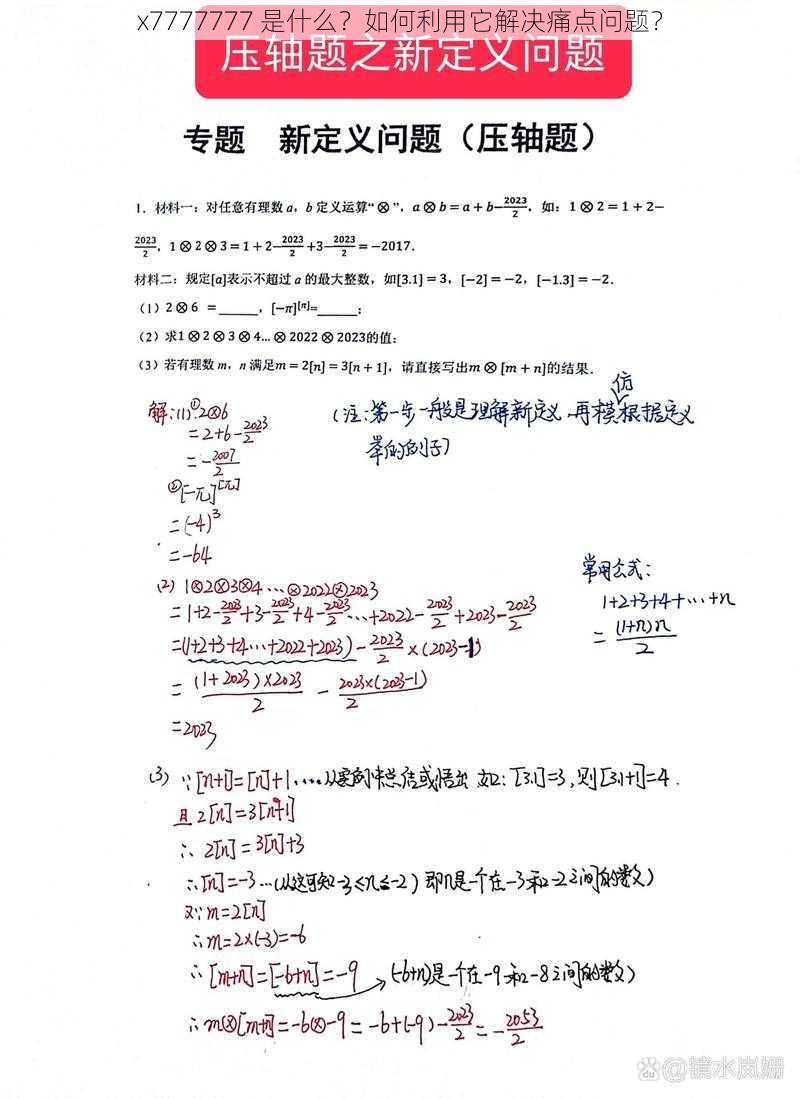 x7777777 是什么？如何利用它解决痛点问题？
压轴题之新定义问题
专题 新定义问题（压轴题）
1. 材料一：对任意有理数 a，b 定义运算“⊗”，a⊗b=a+b−2023/2，如：1⊗2=1+2−
2023/2，1⊗2⊗3=1+2−2023/2+3−2023/2=−2017.
材料二：规定[a]表示不超过 a 的最大整数，如[3.1]=3，[−2]=−2，[−1.3]=−2.
（1）2⊗6 =_____，[−π]^[π]=_____；
（2）求1⊗2⊗3⊗4…⊗2022⊗2023的值；
（3）若有理数 m，n 满足m=2[n]=3[n+1]，请直接写出m⊗[m+n]的结果.
仿
解：(1)①2⊗6 （注：第一步一般是理解新定义，再模根据定义
=2+6−2023/2 举的例子）
=−2007/2
②[−π]^[π]
=(−4)^3
=−64
常用公式：
(2) 1⊗2⊗3⊗4…⊗2022⊗2023
1+2+3+4+…+n
=1+2−2023/2+3−2023/2+4−2023/2…+2022−2023/2+2023−2023/2
=(1+n)n/2
=(1+2+3+4…+2022+2023)−2023/2×(2023−1)
=(1+2023)×2023/2 − 2023×(2023−1)/2
=2023
(3) ∵[n+1]=[n]+1 … 如：[3.1]=3，则[3.1+1]=4.
且2[n]=3[n+1]
∴2[n]=3[n]+3
∴[n]=−3…(从这可知−3≤n≤−2）即n是一个在−3和−2之间的数）
又∵m=2[n]
∴m=2×(−3)=−6
∴[m+n]=[−6+n]=−9 (−6+n)是一个在−9和−8之间的数）
∴m⊗[m+n]=−6⊗−9=−6+(−9)−2023/2=−2053/2
Bai du @镜水岚姗